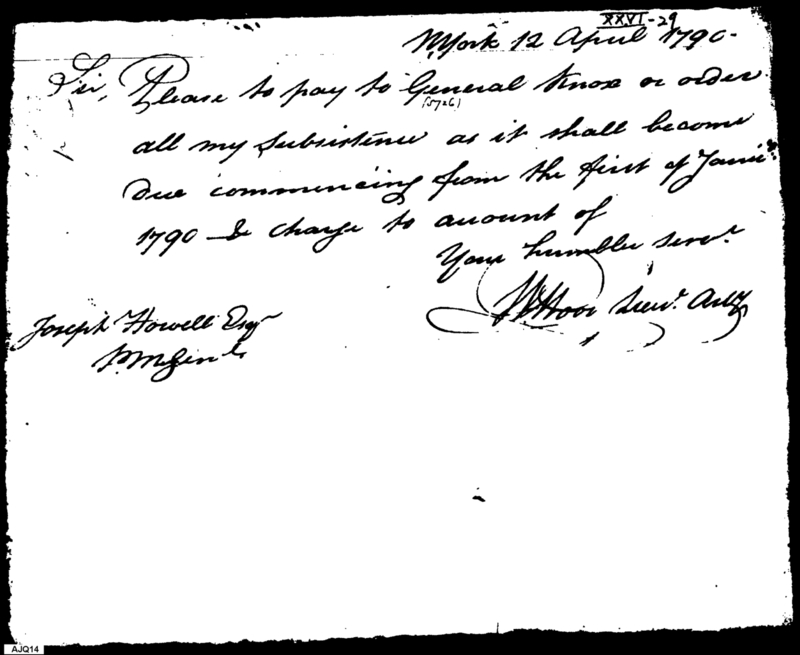 XXVI-29
N York 12 April 1790-
Sir, Please to pay to General Knox or order
(5726)
all my Subsistence as it shall become
due commencing from the first of Janu.y
1790 & charge to account of
Your humble Serv.t
Lieu.t Art.y
Joseph Howell Esq.r
P.M. Gen.l
AJQ14